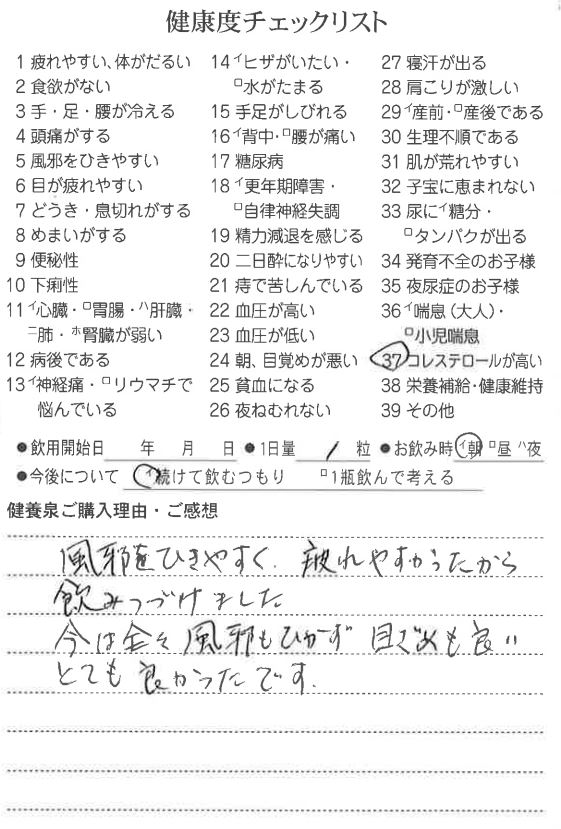 健康度チェックリスト
1 疲れやすい、体がだるい
2 食欲がない
3 手・足・腰が冷える
4 頭痛がする
5 風邪をひきやすい
6 目が疲れやすい
7 どうき・息切れがする
8 めまいがする
9 便秘性
10 下痢性
11 ィ心臓・ロ胃腸・ハ肝臓・
ニ肺・ホ腎臓が弱い
12 病後である
13 ィ神経痛・ロリウマチで
悩んでいる
14 ィヒザがいたい・
ロ水がたまる
15 手足がしびれる
16 ィ背中・ロ腰が痛い
17 糖尿病
18 ィ更年期障害・
ロ自律神経失調
19 精力減退を感じる
20 二日酔になりやすい
21 痔で苦しんでいる
22 血圧が高い
23 血圧が低い
24 朝、目覚めが悪い
25 貧血になる
26 夜ねむれない
27 寝汗が出る
28 肩こりが激しい
29 ィ産前・ロ産後である
30 生理不順である
31 肌が荒れやすい
32 子宝に恵まれない
33 尿にィ糖分・
ロタンパクが出る
34 発育不全のお子様
35 夜尿症のお子様
36 ィ喘息(大人)・
ロ小児喘息
37 コレステロールが高い
38 栄養補給・健康維持
39 その他
●飲用開始日 年 月 日 ●1日量 1 粒 ●お飲み時 ィ朝 ロ昼 ハ夜
●今後について ィ続けて飲むつもり ロ1瓶飲んで考える
健養泉ご購入理由・ご感想
風邪をひきやすく、疲れやすかったから
飲みつづけました
今は全々風邪もひかず 目ざめも良い
とても良かったです.